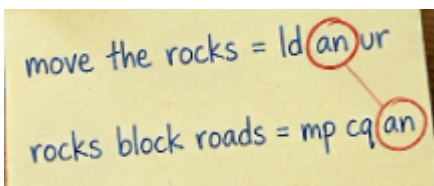 move the rocks = ld an ur
rocks block roads = mp cq an